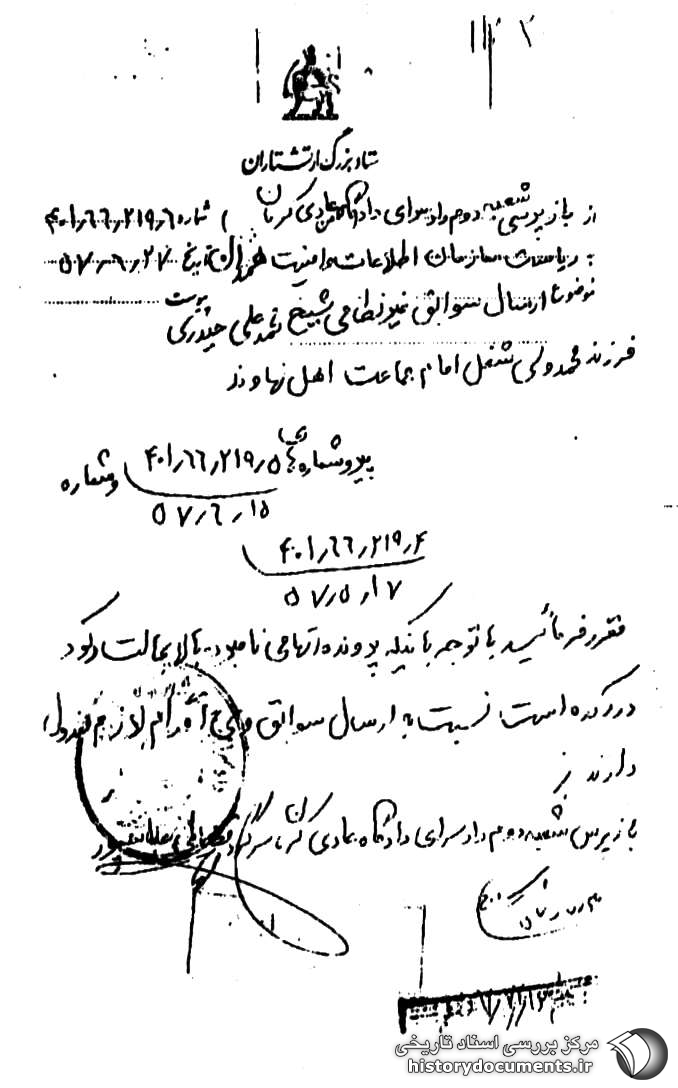 ستاد بزرگ ارتشتاران
از بازپرسی شعبه دوم دادسرای دادگاه عادی کرمان شماره ۴۰۱٫۶۶٫۲۱۹٫۶
به ریاست سازمان اطلاعات و امنیت تاریخ ۵۷٫۶٫۲۷
موضوع ارسال سوابق غیرنظامی شیخ محمد علی حیدری پیوست
فرزند محمدولی شغل امام جماعت اهل نهاوند
پیرو شماره های ۴۰۱٫۶۶٫۲۱۹٫۵ و شماره
۵۷٫۶٫۱۵
۴۰۱٫۶۶٫۲۱۹٫۴
۵۷٫۵٫۱۷
مقرر فرمائید با توجه باینکه پرونده اتهامی نامبرده بالا بحالت رکود
درآمده است نسبت به ارسال سوابق اقدام لازم مبذول
دارند
بازپرس شعبه دوم دادسرای دادگاه عادی کرمان سرگرد
مرکز بررسی اسناد تاریخی
historydocuments.ir